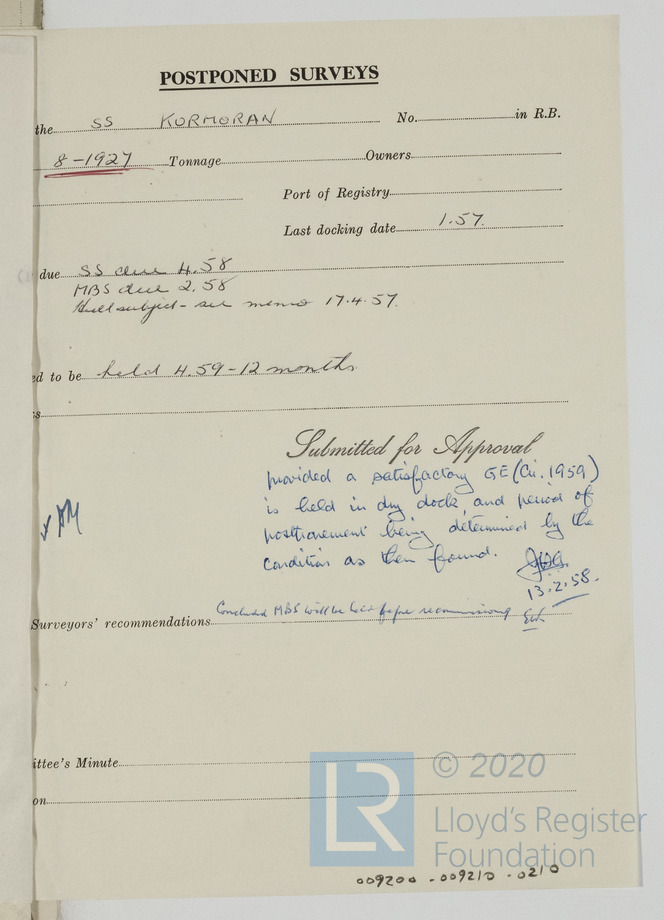 POSTPONED SURVEYS
the SS KORMORAN No. in R.B.
8-1927 Tonnage Owners
Port of Registry
Last docking date 1.57.
due SS due 4.58
MBS due 2.58
Hull subject - see memo 17.4.57.
ed to be held 4.59-12 months
s
Submitted for Approval
provided a satisfactory GE (Cir. 1959)
is held in dry dock, and period of
postponement being determined by the
condition as then found.
13.2.58.
Concluded MBS will be held before recommissioning
Surveyors' recommendations
ittee's Minute
on
LR
© 2020
Lloyd's Register
Foundation
009200-009210-0210